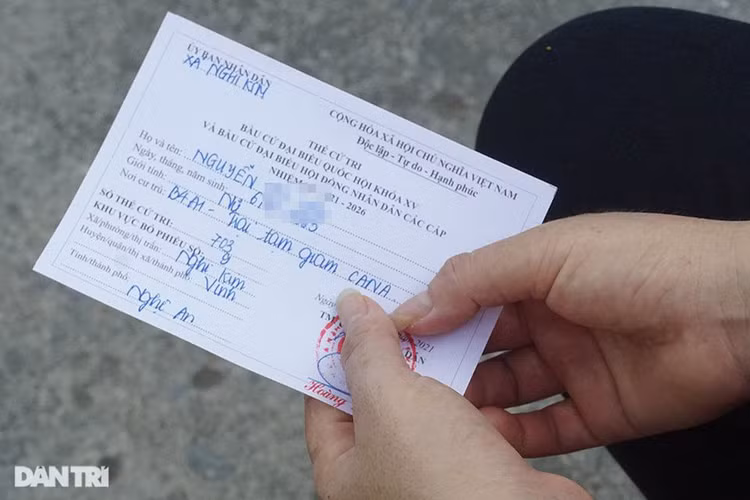 ỦY BAN NHÂN DÂN
XÃ NGHI KIM
CỘNG HÒA XÃ HỘI CHỦ NGHĨA VIỆT NAM
Độc lập - Tự do - Hạnh phúc
THẺ CỬ TRI
BẦU CỬ ĐẠI BIỂU QUỐC HỘI KHÓA XV
VÀ BẦU CỬ ĐẠI BIỂU HỘI ĐỒNG NHÂN DÂN CÁC CẤP
NHIỆM 21 - 2026
Họ và tên: NGUYỄN
Ngày, tháng, năm sinh:
Giới tính: Nữ
Nơi cư trú: B4A1 - trại tạm giam CANA
SỐ THẺ CỬ TRI: 703
KHU VỰC BỎ PHIẾU SỐ: 8
Xã/phường/thị trấn: Nghi Kim
Huyện/quận/thị xã/thành phố: Vinh
Tỉnh/thành phố: Nghệ An
2021
TM
DÂN
Hoàng
DÂN TRÍ